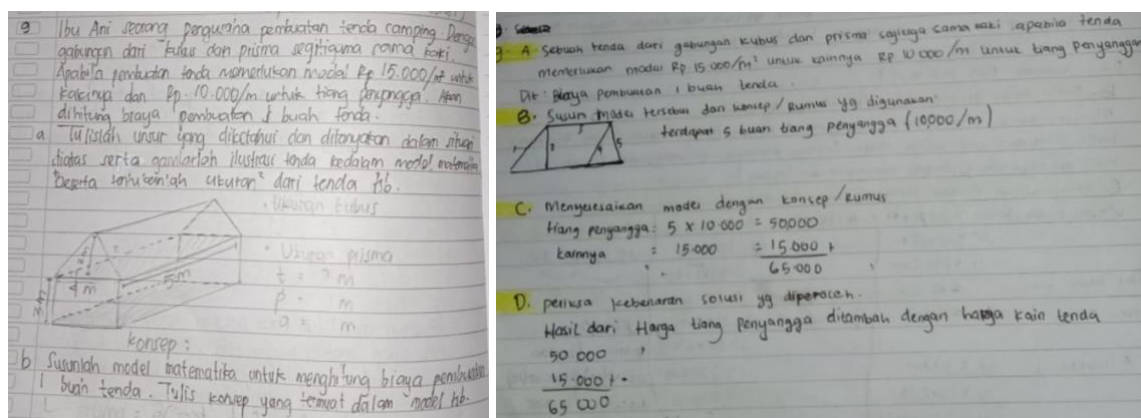 9 Ibu Ani seorang pengusaha pembuatan tenda camping
gabungan dari kubus dan prisma segitiga sama kaki.
Apabila pembuatan tenda memerlukan modal Rp 15.000/m² untuk
kainnya dan Rp. 10.000/m untuk tiang penyangga. Akan
dihitung biaya pembuatan 1 buah tenda.
a Tulislah unsur yang diketahui dan ditanyakan dalam situasi
diatas serta gambarlah ilustrasi tenda kedalam model matematika
beserta ukuran² dari tenda tsb.
• Ukuran kubus
• Ukuran prisma
t = ? m
p = m
a = m
4 m
5m
konsep :
b Susunlah model matematika untuk menghitung biaya pembuatan
1 buah tenda. Tulis konsep yang termuat dalam model tsb.
A. Sebuah tenda dari gabungan kubus dan prisma segitiga sama kaki apabila tenda
memerlukan modal Rp 15.000/m² untuk kainnya Rp 10.000/m untuk tiang penyangga
Dit : Biaya pembuatan 1 buah tenda.
B. Susun model tersebut dan konsep/Rumus yg digunakan
terdapat 5 buah tiang penyangga (10.000/m)
1 2 3 4 5
C. Menyelesaikan model dengan konsep/Rumus
tiang penyangga : 5 x 10.000 = 50,000
kainnya : 15.000 = 15.000 +
65.000
D. periksa kebenaran solusi yg diperoleh.
Hasil dari Harga tiang penyangga ditambah dengan harga kain tenda
50 000
15.000 +
65 000